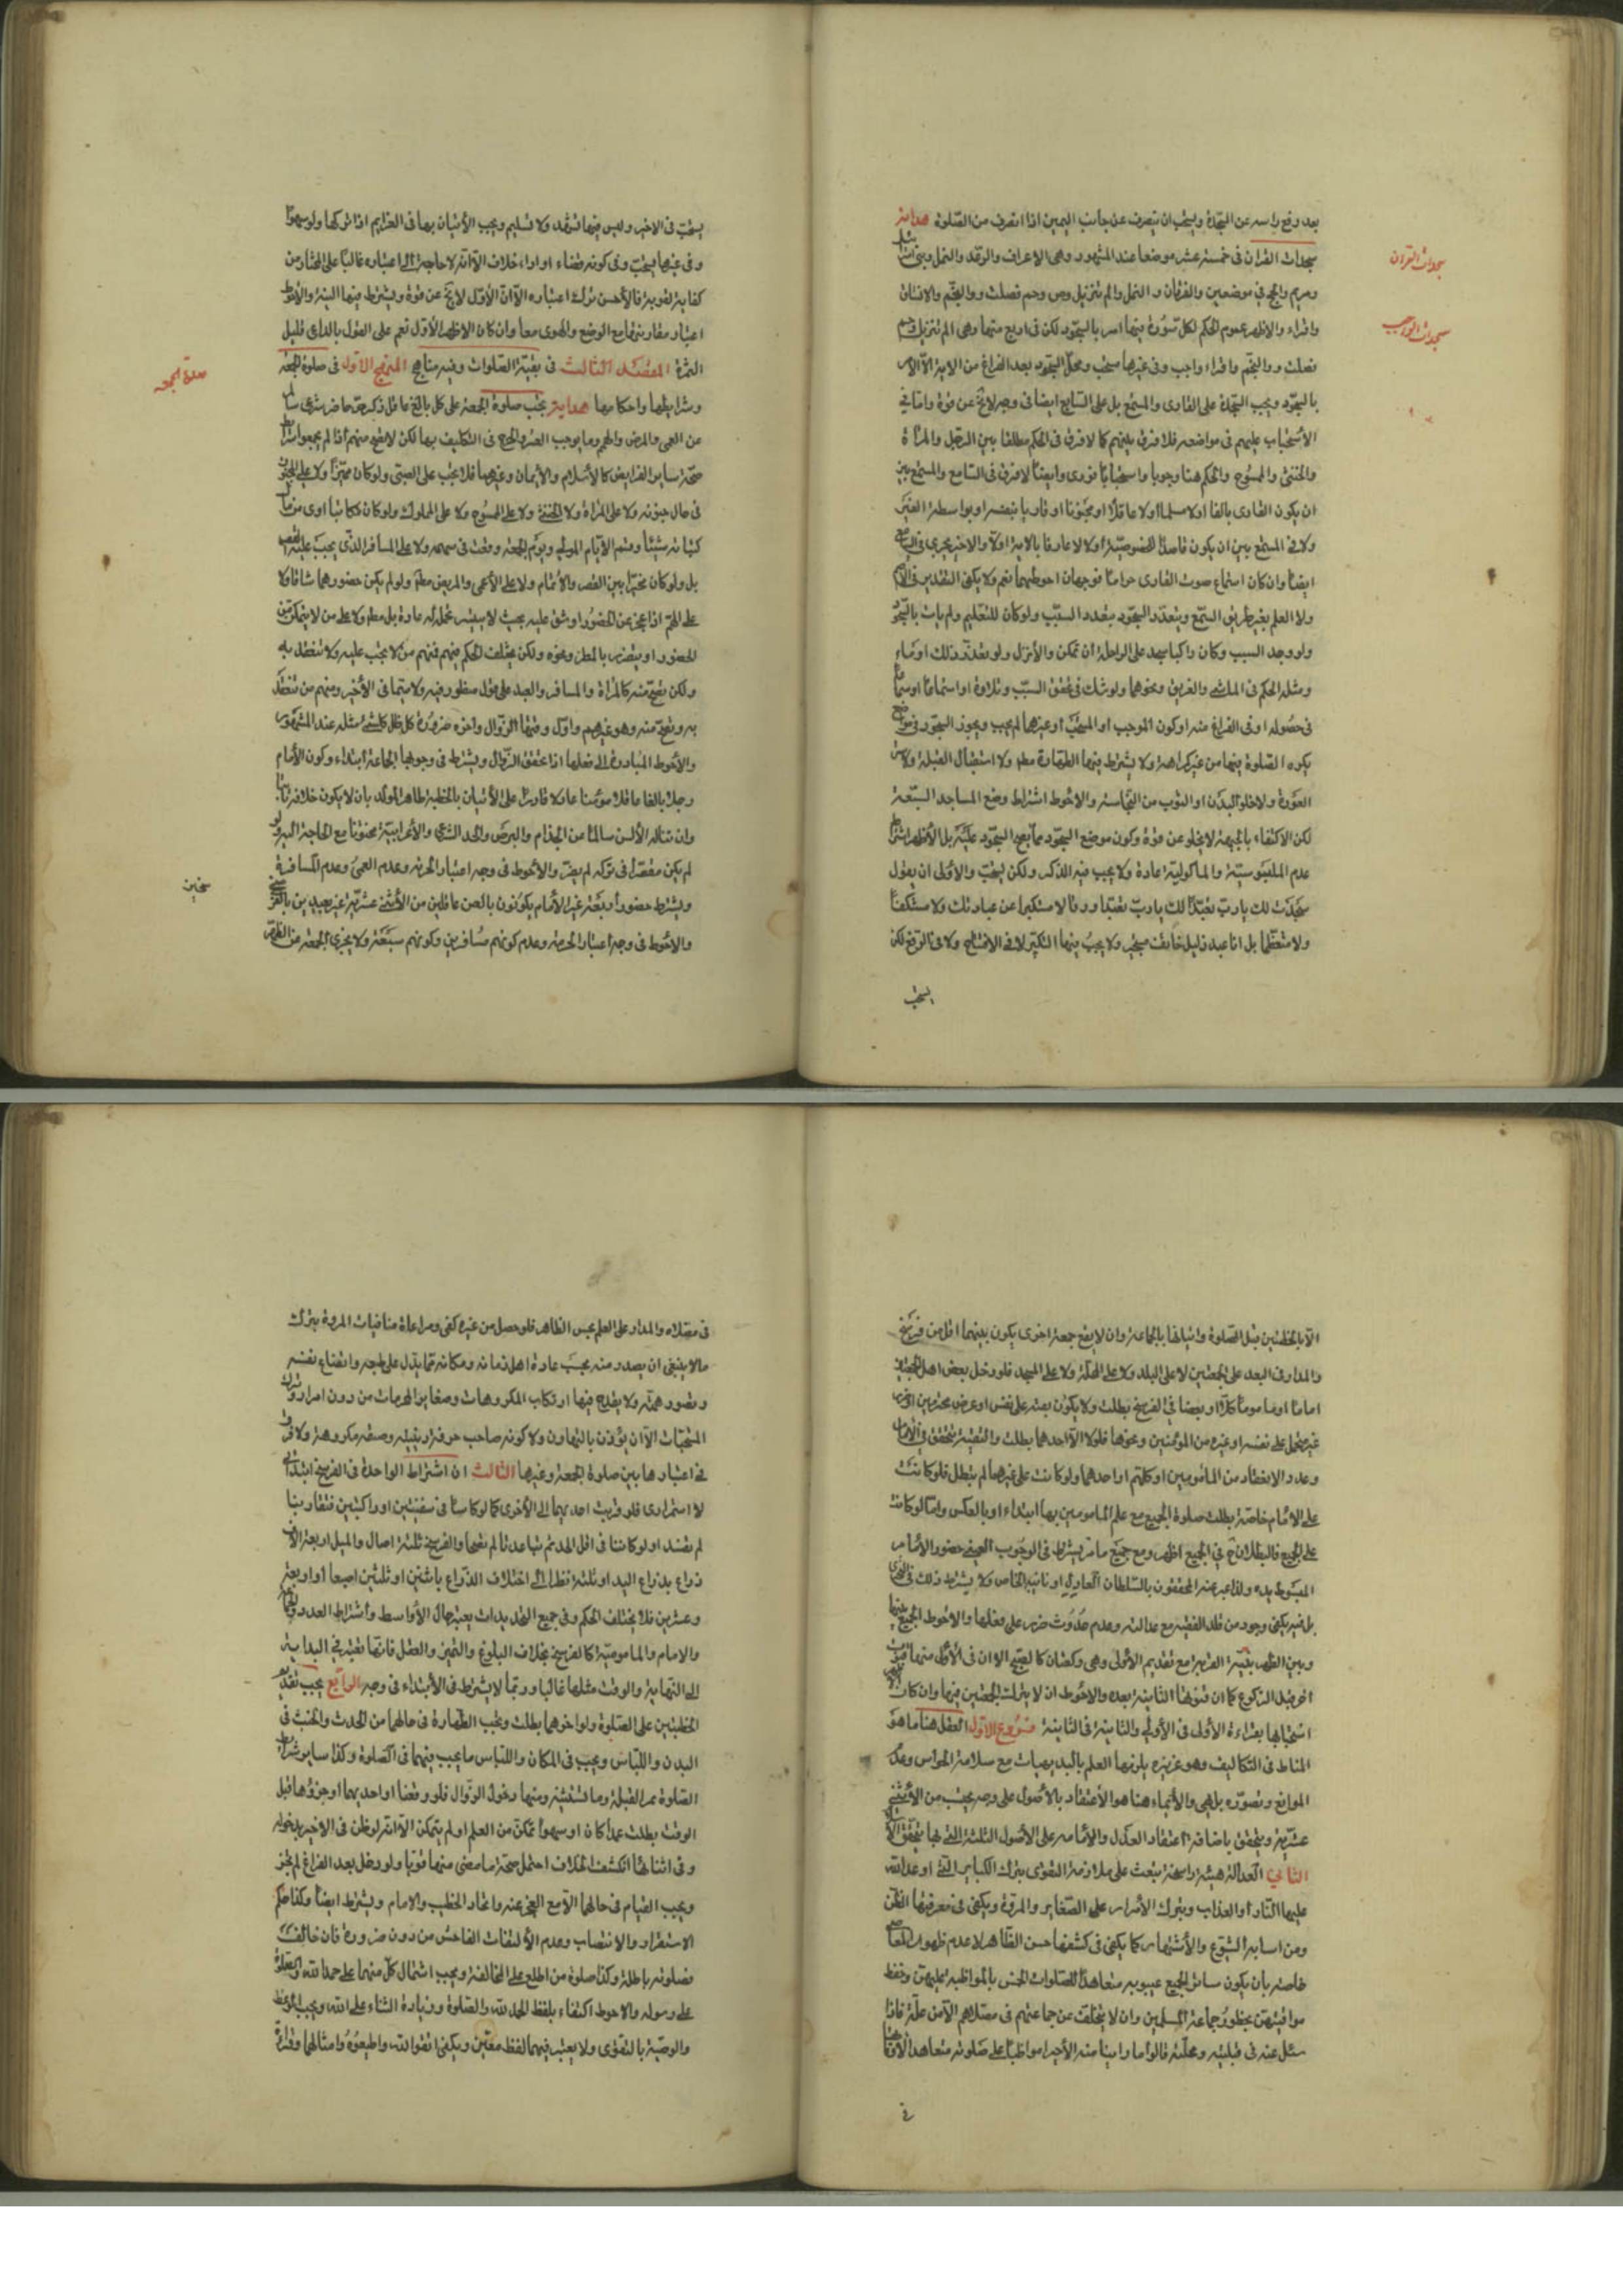 بعد رفع راسه عن السجدة ويستحب ان ينصرف عن جانب اليمين اذا انصرف من الصلوة هداية
سجدات القران في خمسة عشر موضعا عند المشهور وهي الاعراف والرعد والنحل وبنى اسرائيل
ومريم والحج في موضعين والفرقان و النمل والم تنزيل وص وحم فصلت و والنجم والانشقاق
واقراء والاظهر عموم الحكم لكل سورة فيها امر بالسجود لكن في اربع منها وهي الم تنزيل وحم
فصلت و والنجم واقراء واجب وفي غيرها مستحب ومحل السجود بعد الفراغ من الاية
بالسجود ويجب السجدة على القارى والمستمع بل على السامع ايضا في وجه لا يخ عن قوة واما في
الاستحباب عليهم في مواضعه فلا فرق بينهم كما لا فرق في الحكم مطلقا بين الرجل والمراة
والخنثى والممسوح والحكم هنا وجوبا واستحبابا فورى وايضا لا فرق في السامع والمستمع بين
ان يكون القارى بالغا اولا مسلما اولا عاقلا او مجنونا او قاريا بنفسه او بواسطة الغير
ايضا وان كان استماع صوت القارى حراما فوجهان احوطهما نعم ولا يكفى التقدير في
ولا العلم بغير طريق السمع ويتعدد السجود بتعدد السبب ولو كان للتعليم ولم يات بالسجود
ولو وجد السبب وكان راكبا سجد على الراحلة ان تمكن والا نزل ولو تعذر ذلك اوماء
ومثله الحكم في الماشى والغريق ونحوهما ولو شك في تحقق السبب وتلاوة او استماعا او سماعا
في حصوله او في الفراغ منه او كون الموجب او المستحب او غيرهما لم يجب ويجوز السجود في موضع
يكره الصلوة فيها من غير كراهة ولا يشترط فيها الطهارة مطلقا ولا استقبال القبلة ولا ستر
العورة ولا خلو البدن او الثوب من النجاسة والاحوط اشتراط وضع المساجد السبعة
لكن الاكتفاء بالجبهة لا يخلو عن قوة وكون موضع السجود مما يصح السجود عليه بل الاظهر اشتراط
عدم الملبوسية والماكولية عادة ولا يجب فيه الذكر ولكن يستحب والاولى ان يقول
سجدت لك يارب تعبدا لك يارب تعبدا ورقا لا مستكبرا عن عبادتك ولا مستنكفا
ولا متعظما بل انا عبد ذليل خائف مستجير ولا يجب فيها التكبير لا في الافتتاح ولا في الرفع لكن
يستحب
سجدات القران
سجدات الواجب
يستحب في الاخير وليس فيها تشهد ولا تسليم ويجب الاتيان بها في العزايم اذا تركها ولو سهوا
وفي غيرها يستحب وفي كونه قضاء او اداء خلاف الا انه لا حاجة الى اعتباره غالبا على المختار من
كفاية القربة فالاحسن ترك اعتباره الا ان الاول لا يخ عن قوة ويشترط فيها النية والاحوط
اعتبار مقارنتها مع الوضع والهوى معا وان كان الاظهر الاول نعم على القول بالداعى قليل
الثمرة المقصد الثالث في بقية الصلوات وفيه مناهج المنهج الاول في صلوة الجمعة
وشرايطها واحكامها هداية يجب صلوة الجمعة على كل بالغ عاقل ذكر حر حاضر شرعى سالم
من العمى والمرض والهرم وما يوجب العسر والحرج في التكليف بها لكن لا تصح منهم اذا لم يجمعوا شرايط
صحة ساير الفرايض كالاسلام والايمان وغيرهما فلا تجب على الصبى ولو كان مميزا ولا على المجنون
في حال جنونه ولا على المراة ولا الخنثى ولا على الممسوح ولا على المملوك ولو كان مكاتبا
بل ولو كان مخيرا بين القصر والاتمام ولا على الاعمى والمريض مطلقا ولو لم يكن حضورهما شاقا ولا
على الهم اذا عجز عن الحضور او شق عليه بحيث لا يتيسر تحمله له عادة بل مطلقا ولا على من لا يتمكن من
الحضور او يتضرر بالمطر ونحوه ولكن يختلف الحكم فيهم فمنهم من لا يجب عليه ولا تنعقد به
ولكن تصح منه كالمراة والمسافر والعبد على قول منظور فيه ولا سيما في الاخير ومنهم من تنعقد
به وتصح منه وهو غيرهم واول وقتها الزوال واخره صيرورة ظل كل شئ مثله عند المشهور
والاحوط المبادرة الى فعلها اذا تحقق الزوال ويشترط في وجوبها الجماعة ابتداء وكون الامام
رجلا بالغا عاقلا مؤمنا عادلا قادرا على الاتيان بالخطبة طاهر المولد بان لا يكون خلافه ثابتا
وان تناله الالسن سالما من الجذام والبرص والحد الشرعى والاعرابية مختونا مع الحاجة اليه ولو
لم يكن مقصرا في تركه لم يضر والاحوط في وجه اعتبار الحرية وعدم العمى وعدم المسافرة
ويشترط حضور اربعة غير الامام يكونون بالغين عاقلين من الاثنى عشرية غير بعيدين بالفرسخ
والاحوط في وجه اعتبار الحرية وعدم كونهم مسافرين وكونهم سبعة ولا يجزى الجمعة عن الظهر
صلوة الجمعه
الا بالخطبتين قبل الصلوة واتيانها بالجماعة وان لا يقع جمعة اخرى يكون بينهما اقل من فرسخ
والمدار في البعد على الجمعتين لا على البلد ولا على المحلة ولا على المسجد فلو دخل بعض اهل الجمعتين
اماما او ماموما كلا او بعضا في الفرسخ بطلت
وعدد الانعقاد من المامومين او كلهم او احدهما ولو كانت على غيرهما لم يبطل فلو كانت
على الامام خاصة بطلت صلوة الجميع مع علم المامومين بها ابتداء او بالعكس واما لو كانت
على الجميع فالبطلان في الجميع اظهر ومع جميع ما مر يشترط في الوجوب العينى حضور الامام
المبسوط يده ولذا عبر عنه المحققون بالسلطان العادل او نائبه الخاص ولا يشترط ذلك في
بل فيه يكفى وجود من قلد الفقيه مع عدالته وعدم حدوث ضرر على فعلها والاحوط الجمع بينها
وبين الظهر بنية القربة مع تقديم الاولى وهى ركعتان كالصبح الا ان في الاولى منهما قنوت
اخر قبل الركوع كما ان قنوتها الثانية بعده والاحوط ان لا يترك الجمعتين فيها وان كان
استحبابها بقراءة الاولى في الاولى والثانية في الثانية فروع الاول العقل هنا ما هو
المناط في التكاليف وهو غريزة يلزمها العلم بالبديهيات مع سلامة الحواس وعدم
الموانع وتصوره بديهى والايمان هنا هو الاعتقاد بالاصول على وجه يحسب من الاثنى
عشرية ويتحقق باضافة اعتقاد العدل والامامة على الاصول الثلثة التى بها يتحقق الاسلام
الثاني العدالة هيئة راسخة تبعث على ملازمة التقوى بترك الكباير التى اوعد الله
عليها النار او العذاب وبترك الاصرار على الصغاير والمروة ويكفى في معرفتها الظن
ومن اسبابه الشيوع والاشتهار كما يكفى في كشفها حسن الظاهر لا عدم ظهور المعاصى
خاصة بان يكون ساترا لجميع عيوبه متعاهدا للصلوات الخمس بالمواظبة عليهن وحفظ
مواقيتهن بحضور جماعة المسلمين وان لا يتخلف عن جماعتهم في مصلاهم الا من علة فاذا
سئل عنه في قبيلته ومحلته قالوا ما راينا منه الا خيرا مواظبا على صلوته متعاهدا لاوقاتها
في
في مصلاه والمدار على العلم بحسن الظاهر فلو حصل من غيره كفى ومراعاة منافيات المروة بترك
مالا ينبغى ان يصدر منه بحسب عادة اهل زمانه ومكانه مما يدل على
ولا يقدح فيها ارتكاب المكروهات وصغاير المحرمات من دون اصرار وترك
المستحبات الا ان يؤذن بالتهاون ولا كونه صاحب حرفة دنية وصنعة مكروهة ولا فرق
في اعتبارها بين صلوة الجمعة وغيرها الثالث ان اشتراط الواحدة في الفرسخ ابتدائى
لا استمرارى فلو قربت احديهما الى الاخرى كما لو كانتا في سفينتين او راكبتين فتقاربتا
لم تفسد او لو كانتا في اقل الحد ثم تباعدتا لم تصحا والفرسخ ثلثة اميال والميل اربعة الاف
ذراع بذراع اليد
وعشرين فلا يختلف الحكم وفي جميع التحديدات يعتبر حال الاواسط واشتراط العدد
والامام والمامومية كالفرسخ بخلاف البلوغ والتميز والعقل فانها تعتبر في البداية
الى النهاية والوقت مثلها غالبا وربما لا يشترط في الابتداء في وجه الرابع يجب تقديم
الخطبتين على الصلوة ولو اخرهما بطلت ويجب الطهارة في حالهما من الحدث والخبث في
البدن واللباس ويجب في المكان واللباس ما يجب فيهما في الصلوة وكذا ساير شرايط
الصلوة عدا القبلة وما تستثنيه ومنها دخول الزوال فلو وقعتا او احديهما او جزؤها قبل
الوقت بطلت عمدا كان او سهوا تمكن من العلم او لم يتمكن الا انه لو ظن في الاخير بدخوله
وفي اثنائها انكشف الخلاف احتمل صحة ما مضى منها قويا ولو دخل بعد الفراغ لم يجز
ويجب القيام في حالهما الا مع العجز عنه واتحاد الخطيب والامام ويشترط ايضا وكذا حكم
الاستقرار والانتصاب وعدم الالتفات الفاحش من دون ضرورة فان خالف
فصلوته باطلة وكذا صلوة من اطلع على المخالفة ويجب اشتمال كل منهما على حمد الله والصلوة
على رسوله والاحوط اكتفاء بلفظ الحمد لله والصلوة وزيادة الثناء على الله ويجب الوعظ
والوصية بالتقوى ولا يعتبر فيهما لفظ معين ويكفى اتقوا الله واطيعوه وامثالهما وقراءة